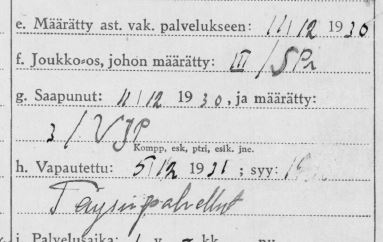 e. Määrätty ast. vak. palvelukseen: 11/12 1930
f. Joukko-os, johon määrätty: III/SPr
g. Saapunut: 11/12 1930, ja määrätty:
3/VJP
Kompp, esk, ptri, esik. jne.
h. Vapautettu: 5/12 1931; syy:
Täysinpalvellut
i. Palvelusaika: 1 v. kk.